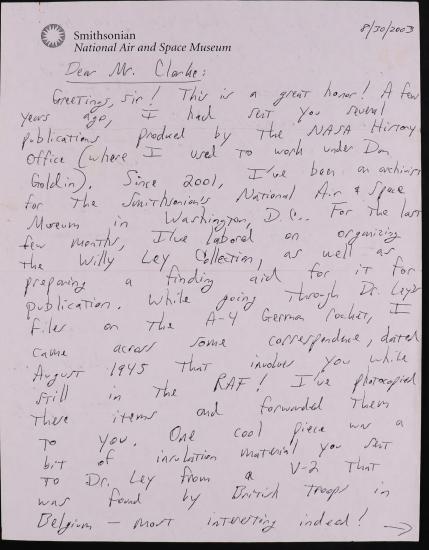 Smithsonian
National Air and Space Museum
8/30/2003
Dear Mr. Clarke:
Greetings, sir! This is a great honor! A few
years ago, I had sent you several
publications produced by the NASA History
Office (where I used to work under Dan
Goldin). Since 2001, I've been an archivist
for the Smithsonian's National Air & Space
Museum in Washington, D.C.. For the last
few months, I've labored on organizing
the Willy Ley Collection, as well as
preparing a finding aid for it for
publication. While going through Dr. Ley's
files on the A-4 German rocket, I
came across some correspondence, dated
August 1945 that involves you while
still in the RAF! I've photocopied
these items and forwarded them
to you. One cool piece was a
bit of insulation material you sent
to Dr. Ley from a V-2 that
was found by British troops in
Belgium — most interesting indeed! →